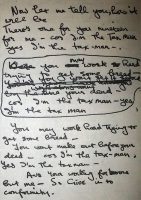 Now let me tell you, how it
will be
There's one for you nineteen
for me - cos I'm the tax man
yes I'm the tax-man -
you may work hard
trying to get some bread
dead
cos I'm the tax man - yes
I'm the tax man
You may work hard trying to
get some bread -
You wont make out before your
dead - cos I'm the tax-man,
yes I'm the tax-man -
And you working for no one
but me - So Give in to
conformity.